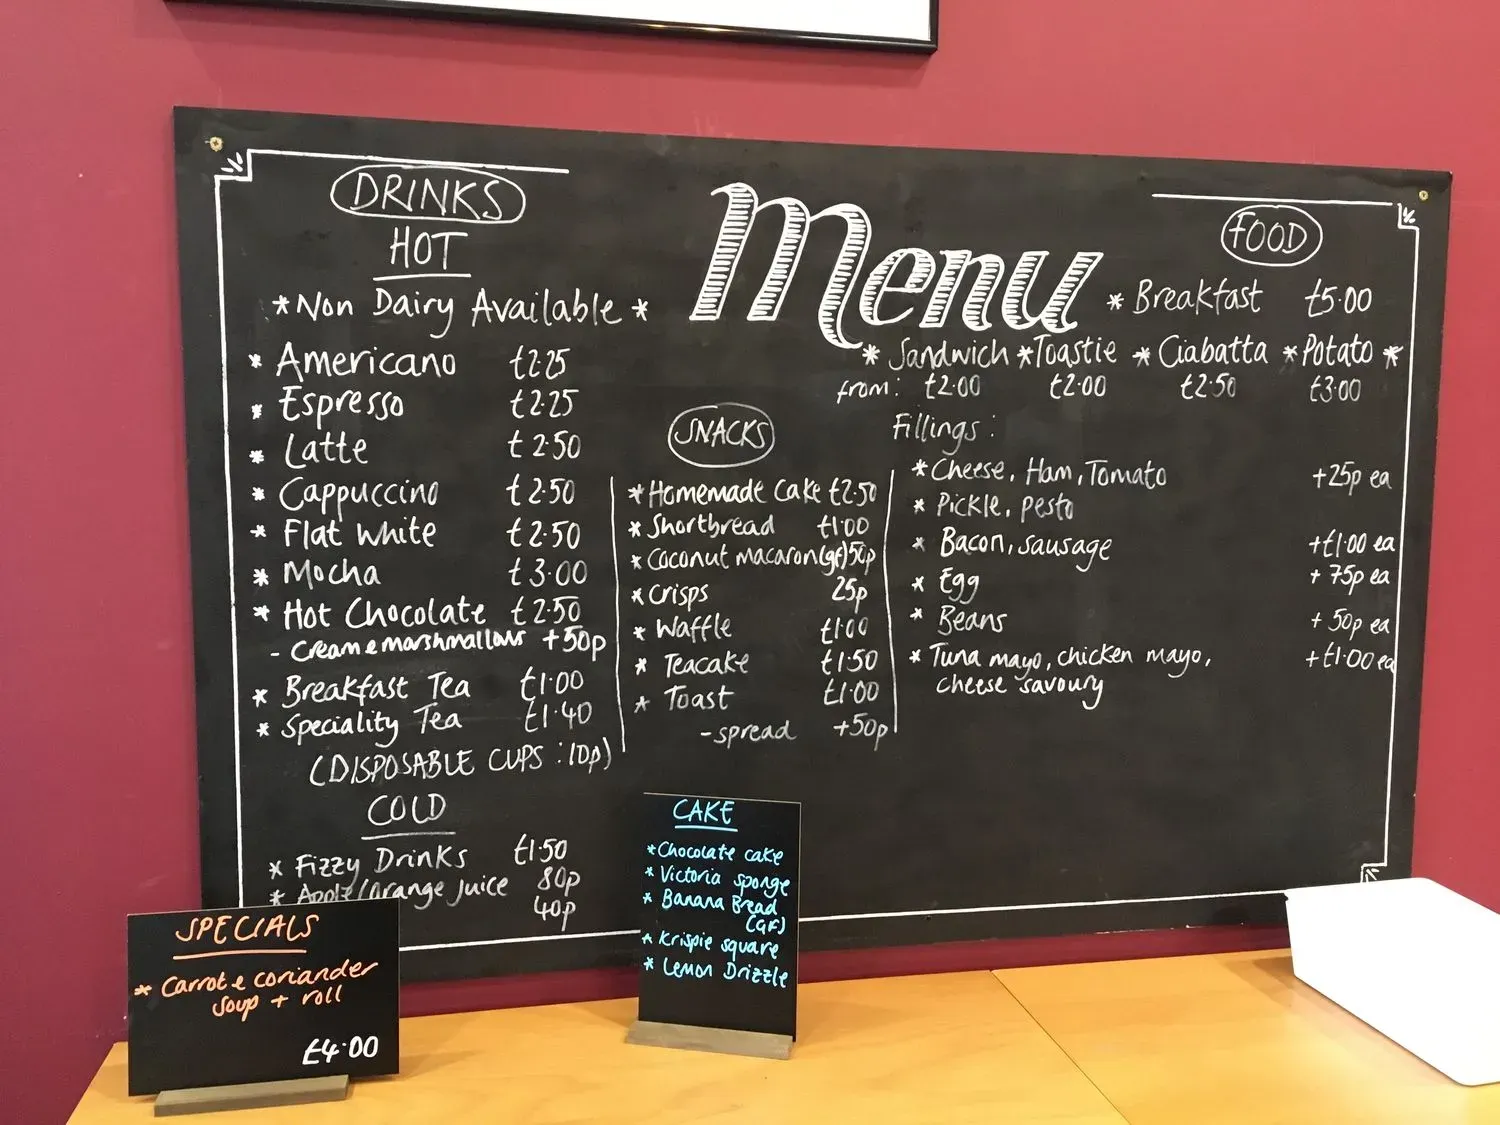 Menu
DRINKS
HOT
*Non Dairy Available*
* Americano £2.25
* Espresso £2.25
* Latte £2.50
* Cappuccino £2.50
* Flat White £2.50
* Mocha £3.00
* Hot Chocolate £2.50
- cream & marshmallows +50p
* Breakfast Tea £1.00
* Speciality Tea £1.40
(DISPOSABLE CUPS : 10p)
COLD
* Fizzy Drinks £1.50
* Apple/Orange Juice 80p
40p
SNACKS
* Homemade Cake £2.50
* Shortbread £1.00
* Coconut macaron (gf) 50p
* Crisps 25p
* Waffle £1.00
* Teacake £1.50
* Toast £1.00
- spread +50p
FOOD
* Breakfast £5.00
* Sandwich * Toastie * Ciabatta * Potato *
from: £2.00 £2.00 £2.50 £3.00
Fillings:
* Cheese, Ham, Tomato +25p ea
* Pickle, pesto
* Bacon, sausage +£1.00 ea
* Egg + 75p ea
* Beans + 50p ea
* Tuna mayo, chicken mayo, +£1.00 ea
cheese savoury
SPECIALS
* Carrot & coriander
soup + roll
£4.00
CAKE
* Chocolate cake
* Victoria sponge
* Banana Bread
(GF)
* Krispie square
* Lemon Drizzle